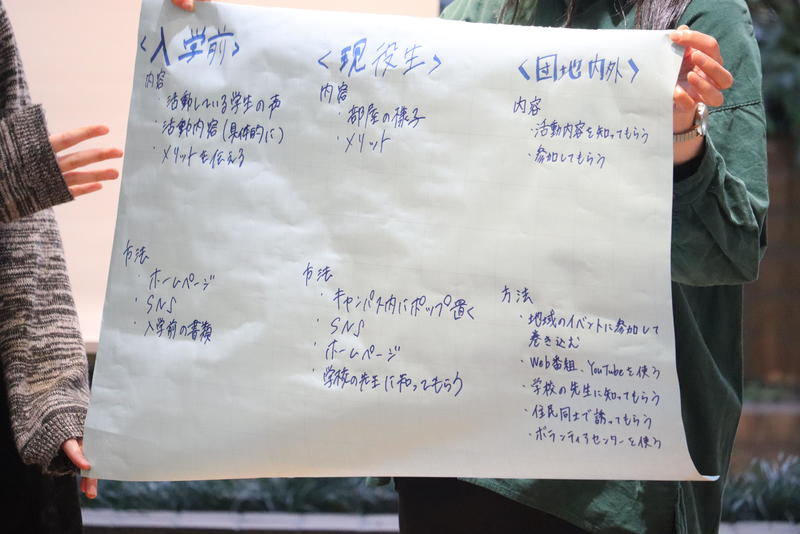 <入学前>
内容
・活動している学生の声
・活動内容(具体的に)
・メリットを伝える
方法
・ホームページ
・SNS
・入学前の書類
<現役生>
内容
・部屋の様子
・メリット
方法
・キャンパス内にポップ置く
・SNS
・ホームページ
・学校の先生に知ってもらう
<団地内外>
内容
・活動内容を知ってもらう
・参加してもらう
方法
・地域のイベントに参加して
巻き込む
・Web番組、YouTubeを使う
・学校の先生に知ってもらう
・住民同士で誘ってもらう
・ボランティアセンターを使う